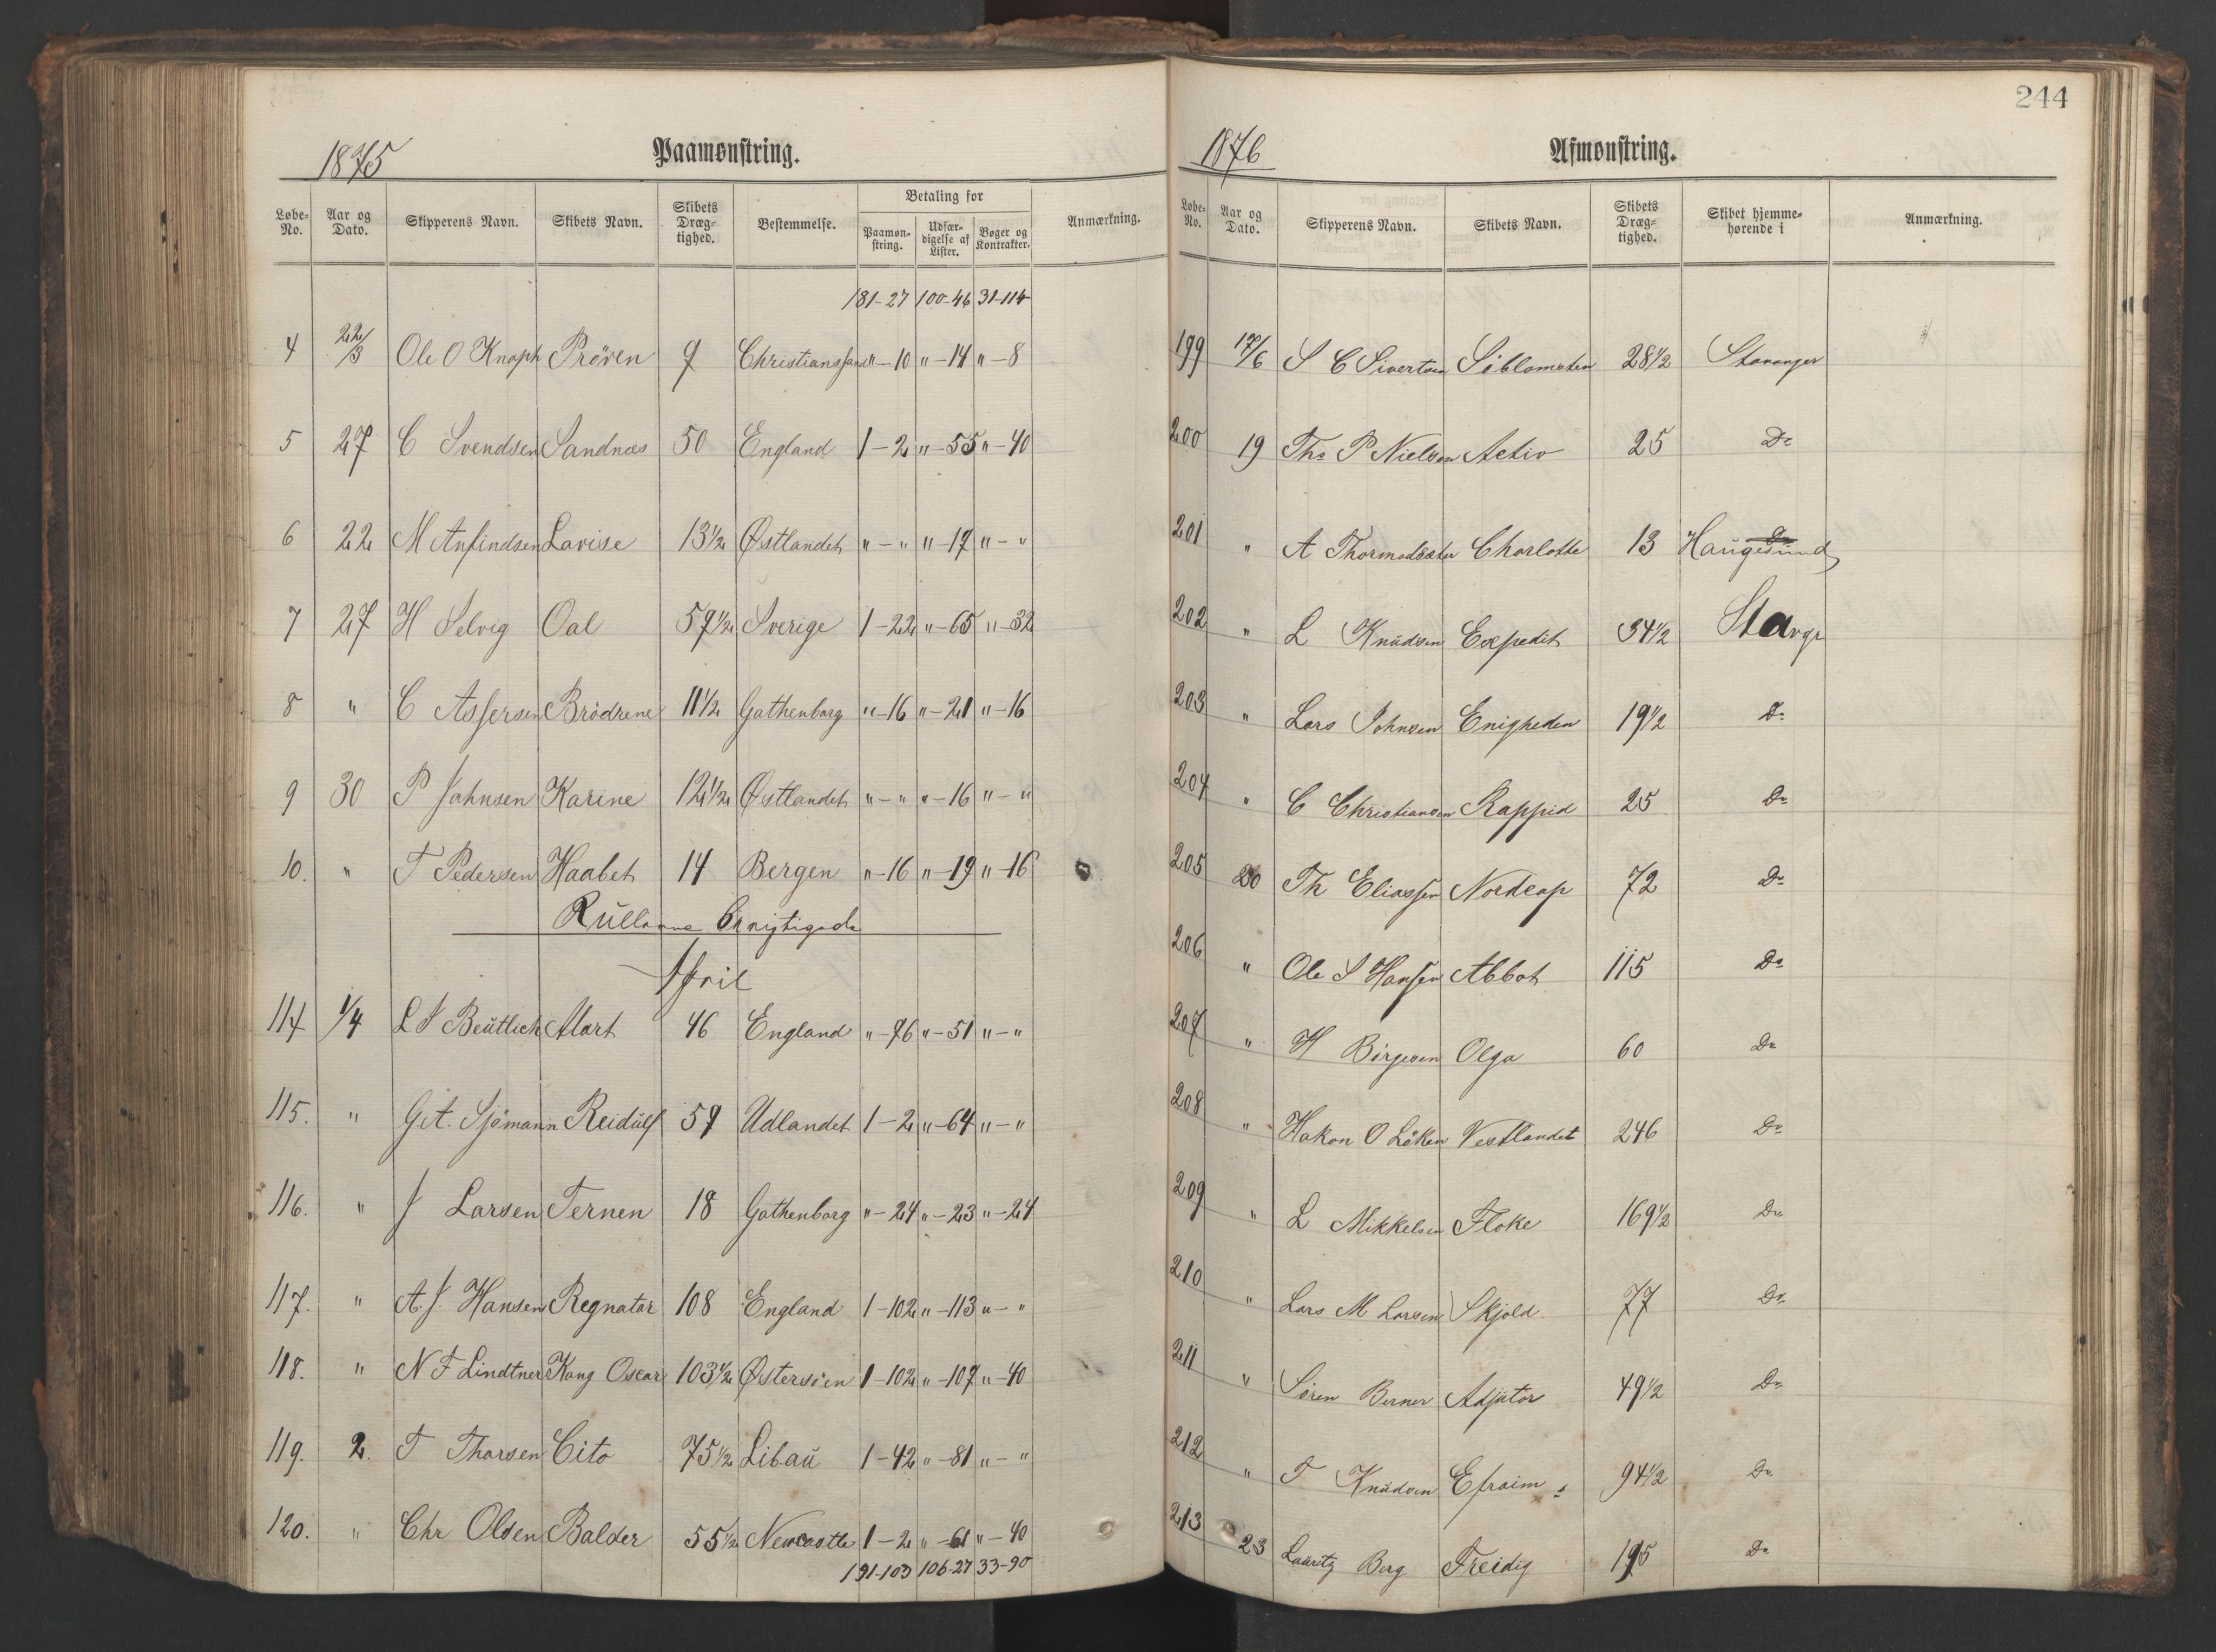 1875 Paamønstring.
Løbe-No. Aar og Dato. Skipperens Navn. Skibets Navn. Skibets Dræg-tighed. Bestemmelse. Betaling for Paamøn-string. Udfær-digelse af Lister. Bøger og Kontrakter. Anmærkning.
181-27 100-46 31-114
4 22/3 Ole O Knaph Pröven 9 Christianssand " - 10 " - 14 " - 8
5 27 C Svendsen Sandnæs 50 England 1 - 2 " - 55 " - 40
6 22 M Anfindsen Lavise 13 1/2 Østlandet " - " " - 17 " - "
7 27 H Selvig Oal 59 1/2 Sverige 1 - 22 " - 65 " - 32
8 " C Assersen Brödrene 11 1/2 Gothenborg " - 16 " - 21 " - 16
9 30 P Johnsen Karine 12 1/2 Østlandet " - " " - 16 " - "
10. " T Pedersen Haabet 14 Bergen " - 16 " - 19 " - 16
April
114 1/4 L S Beütlich Alart 46 England " - 76 " - 51 " - "
115. " G. A. Sjömann Reidülf 59 Udlandet 1 - 2 " - 64 " - "
116. " J Larsen Ternen 18 Gothenborg " - 24 " - 23 " - 24
117. " A. J. Hansen Regnator 108 England 1 - 102 " - 113 " - "
118. " N F Lindtner Kong Oscar 103 1/2 Østersöen 1 - 102 " - 107 " - 40
119. 2. T Thorsen Cito 75 1/2 Libaü 1 - 42 " - 81 " - "
120. " Chr Olsen Balder 55 1/2 Newcastle 1 - 2 " - 61 " - 40
191-103 106-27 33-90
244
1876 Afmønstring.
Løbe-No. Aar og Dato. Skipperens Navn. Skibets Navn. Skibets Dræg-tighed. Skibet hjemme-hørende i Anmærkning.
199 17/6 S C Sivertsen Söblomsten 28 1/2 Stavanger
200 19 Ths P Nielsen Activ 25 Do
201 " A Thormodsæter Charlotte 13 Haugesund
202 " L Knüdsen Expedit 34 1/2 Stavgr
203 " Lars Johnsen Enigheden 19 1/2 Do
204 " C Christiansen Rappid 25 Do
205 20 Th Eliassen Nordcap 72 Do
206 " Ole S Hansen Abbot 115 Do
207 " H Börgesen Olga 60 Do
208 " Hakon O Löken Vestlandet 246 Do
209 " L Mikkelsen Floke 169 1/2 Do
210 " Lars M Larsen Skjold 77 Do
211 " Sören Berner Adjutor 49 1/2 Do
212 " T Knüdsen Efraim 94 1/2 Do
213 23 Lauritz Berg Freidig 195 Do